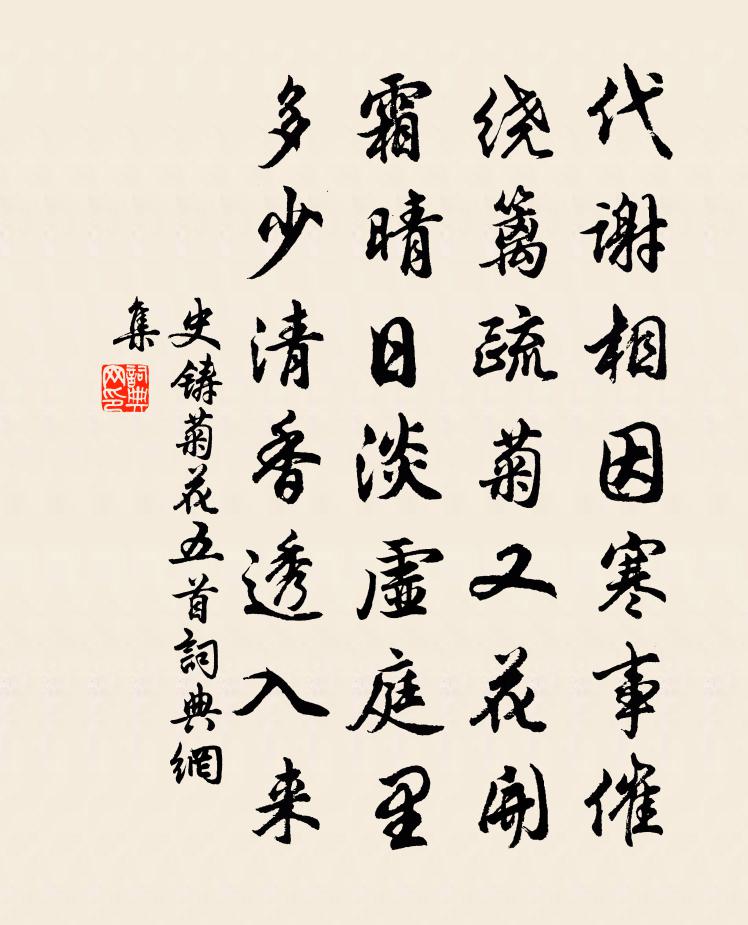 代谢相因寒事催
绕篱疏菊又花開
霜晴日淡虚庭里
多少清香透入来
史鑄菊花五首詞典網
集
詞典
网印